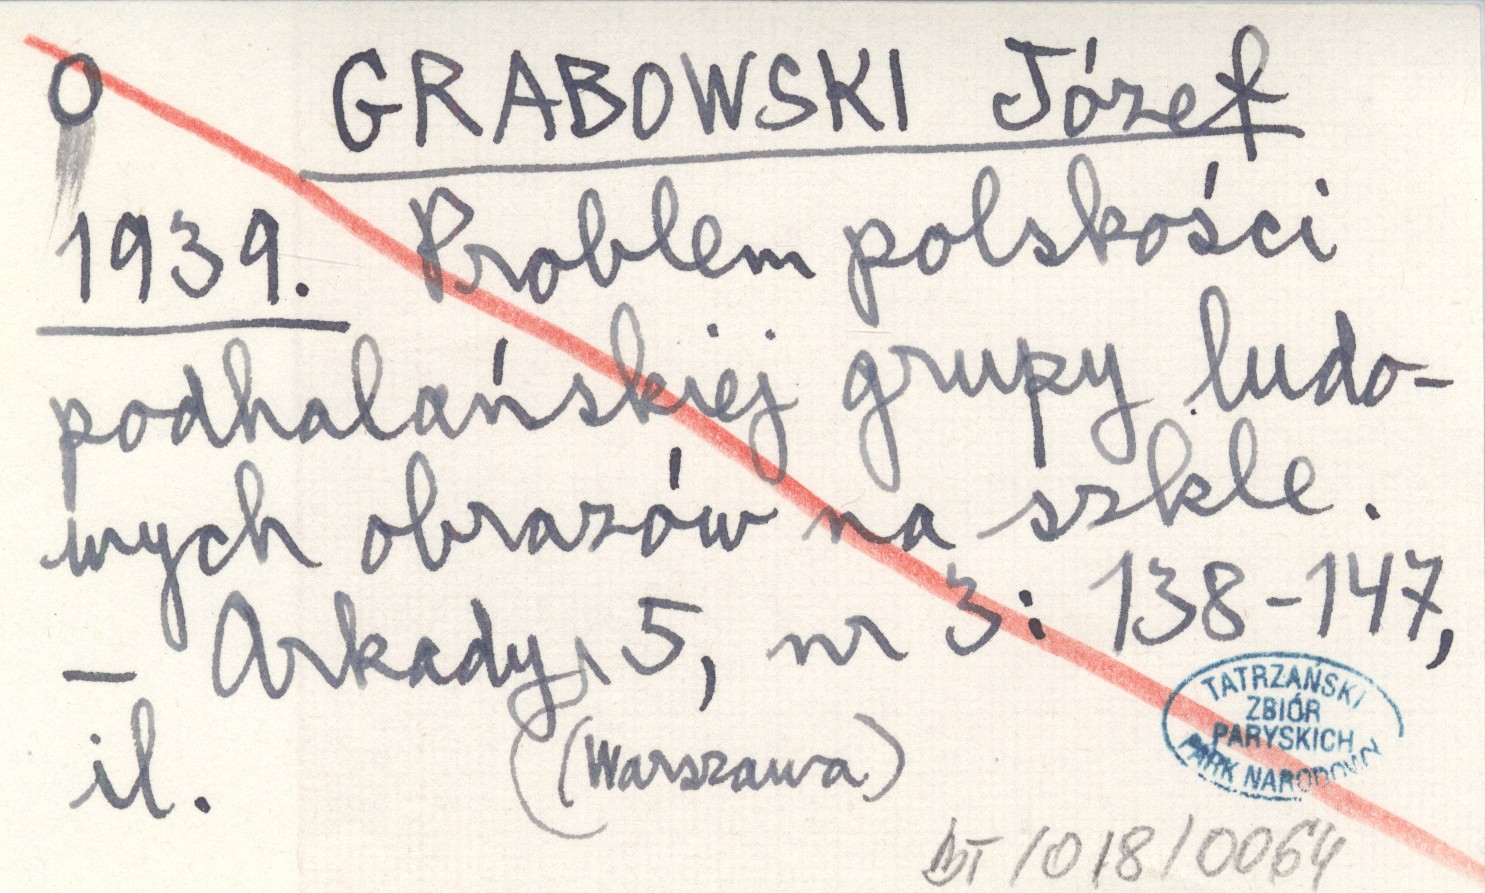 O GRABOWSKI Józef
1939. Problem polskości
podhalańskiej grupy ludo-
wych obrazów na szkle.
— Arkady, 5, nr 3: 138-147,
il. (Warszawa)
TATRZAŃSKI
ZBIÓR
PARYSKICH
PARK NARODOWY
BT/018/0064